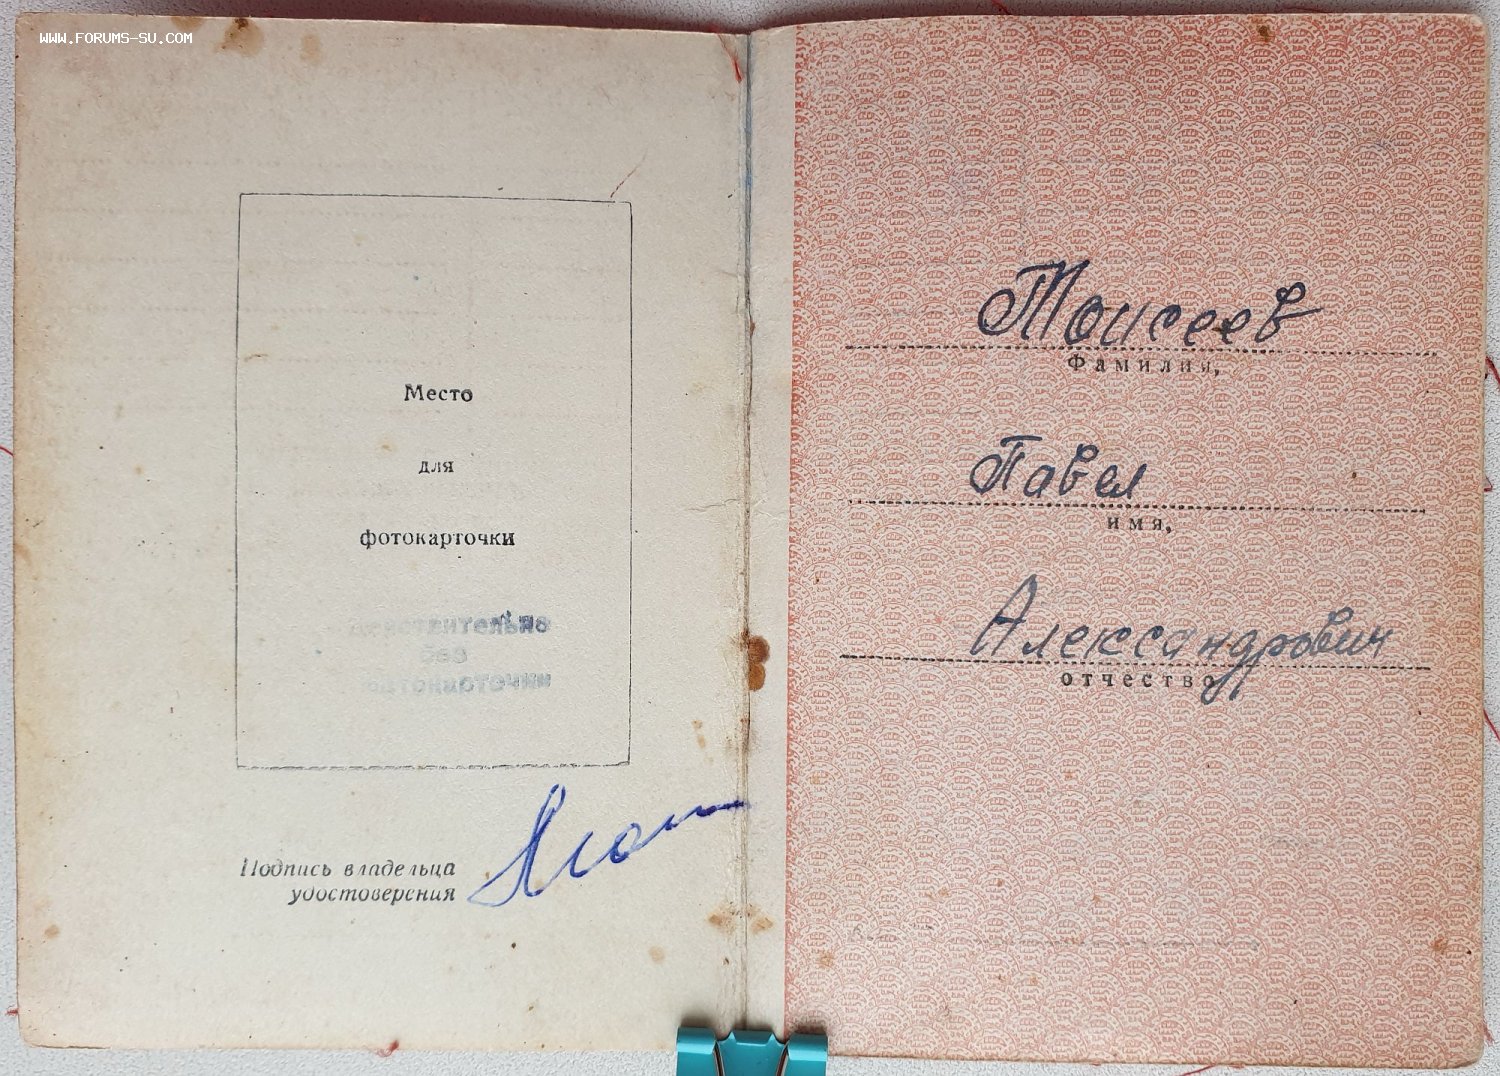 WWW.FORUMS-SU.COM
Место
для
фотокарточки
Действительно
без
фотокарточки
Подпись владельца
удостоверения
Моисеев
Фамилия,
Павел
имя,
Александрович
отчество